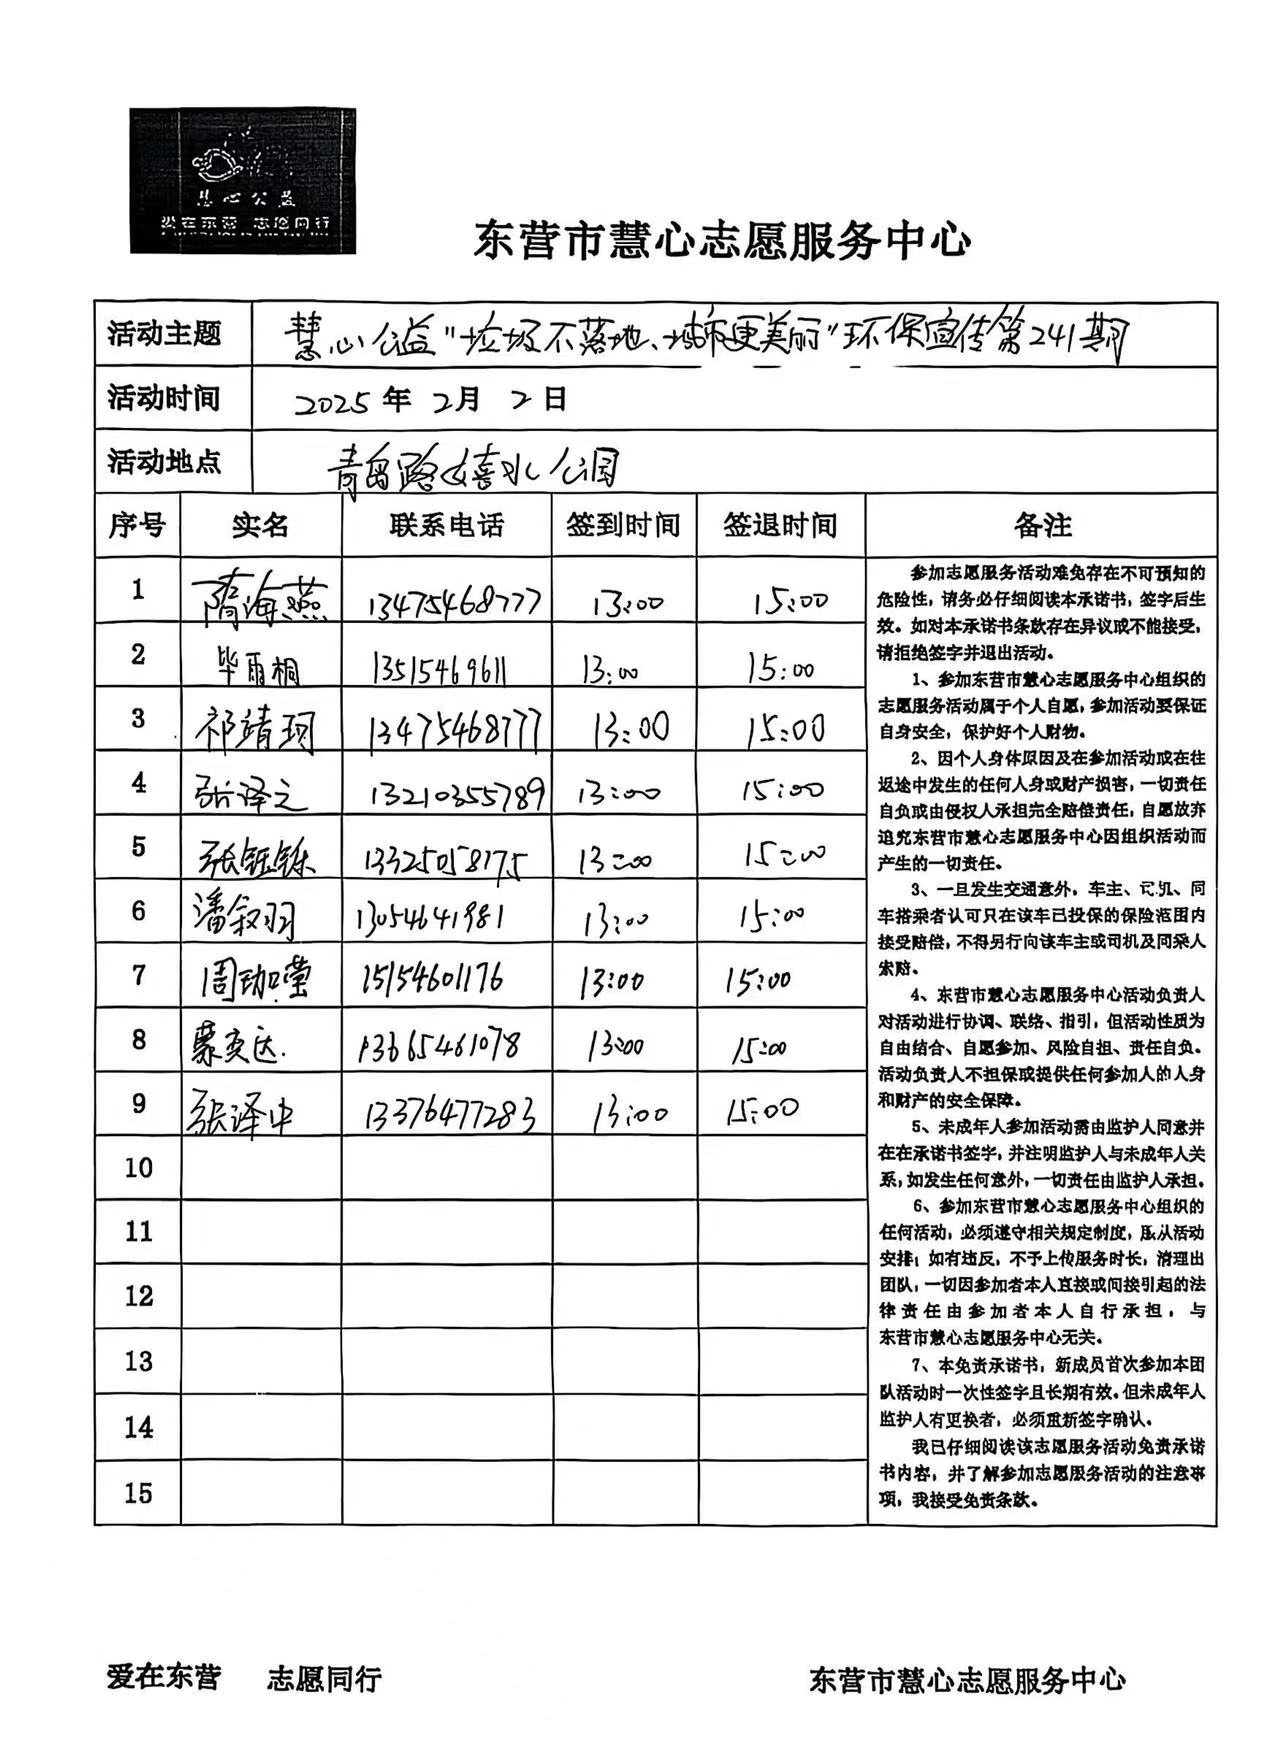 慧心公益
爱在东营 志愿同行
东营市慧心志愿服务中心
活动主题 慧心公益"垃圾不落地、城市更美丽"环保宣传第241期
活动时间 2025年2月2日
活动地点 青岛路嬉水公园
序号 实名 联系电话 签到时间 签退时间 备注
1 隋海燕 13475468777 13:00 15:00
2 毕雨桐 13515469611 13:00 15:00
3 祁靖珂 13475468777 13:00 15:00
4 张泽之 13210355789 13:00 15:00
5 张钰铄 13325058175 13:00 15:00
6 潘叙羽 13054641981 13:00 15:00
7 周珈莹 15154601176 13:00 15:00
8 綦奕达 13665461078 13:00 15:00
9 张泽中 13376477283 13:00 15:00
10
11
12
13
14
15
参加志愿服务活动难免存在不可预知的
危险性，请务必仔细阅读本承诺书，签字后生
效。如对本承诺书条款存在异议或不能接受，
请拒绝签字并退出活动。
1、参加东营市慧心志愿服务中心组织的
志愿服务活动属于个人自愿，参加活动要保证
自身安全，保护好个人财物。
2、因个人身体原因及在参加活动或在往
返途中发生的任何人身或财产损害，一切责任
自负或由侵权人承担完全赔偿责任，自愿放弃
追究东营市慧心志愿服务中心因组织活动而
产生的一切责任。
3、一旦发生交通意外，车主、司机、同
车搭乘者认可只在该车已投保的保险范围内
接受赔偿，不得另行向该车主或司机及同乘人
索赔。
4、东营市慧心志愿服务中心活动负责人
对活动进行协调、联络、指引，但活动性质为
自由结合、自愿参加、风险自担、责任自负。
活动负责人不担保或提供任何参加人的人身
和财产的安全保障。
5、未成年人参加活动需由监护人同意并
在在承诺书签字，并注明监护人与未成年人关
系，如发生任何意外，一切责任由监护人承担。
6、参加东营市慧心志愿服务中心组织的
任何活动，必须遵守相关规定制度，服从活动
安排；如有违反，不予上传服务时长，清理出
团队，一切因参加者本人直接或间接引起的法
律责任由参加者本人自行承担，与
东营市慧心志愿服务中心无关。
7、本免责承诺书，新成员首次参加本团
队活动时一次性签字且长期有效。但未成年人
监护人有更换者，必须重新签字确认。
我已仔细阅读该志愿服务活动免责承诺
书内容，并了解参加志愿服务活动的注意事
项，我接受免责条款。
爱在东营 志愿同行 东营市慧心志愿服务中心